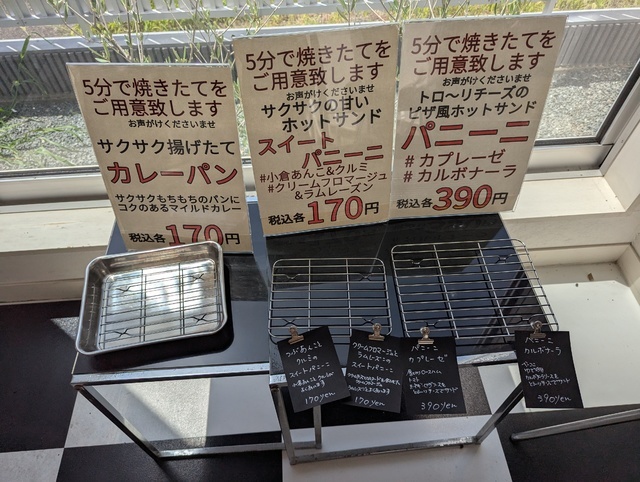 5分で焼きたてを
ご用意致します
お声がけくださいませ
サクサク揚げたて
カレーパン
サクサクもちもちのパンに
コクのあるマイルドカレー
税込各170円
5分で焼きたてを
ご用意致します
お声がけくださいませ
サクサクの甘い
ホットサンド
スイート
パニーニ
#小倉あんこ&クルミ
#クリームフロマージュ
&ラムレーズン
税込各170円
5分で焼きたてを
ご用意致します
お声がけくださいませ
トロ〜リチーズの
ピザ風ホットサンド
パニーニ
#カプレーゼ
#カルボナーラ
税込各390円
つぶあんこと
クルミの
スイートパニーニ
170yen
クリームフロマージュと
ラムレーズンの
スイートパニーニ
170yen
パニーニ
カプレーゼ
390yen
パニーニ
カルボナーラ
390yen